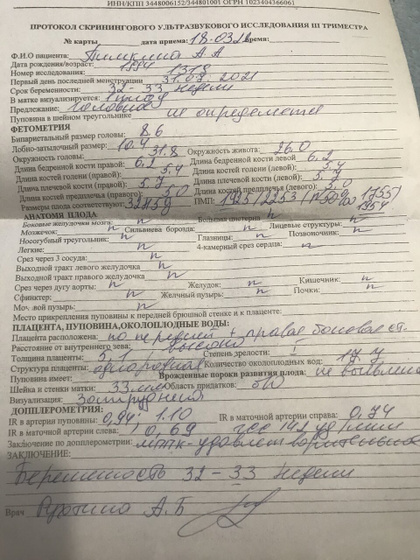 ИНН/КПП 3448006152/344801001 ОГРН 1023404366061
ПРОТОКОЛ СКРИНИНГОВОГО УЛЬТРАЗВУКОВОГО ИССЛЕДОВАНИЯ III ТРИМЕСТРА
№ карты дата приема: 18.03.22 время:
Ф.И.О пациента: А.А
Дата рождения/возраст: 1994
Номер исследования: 1378
Первый день последней менструации 31.08.2021
Срок беременности: 32-33 недели
В матке визуализируется: 1 плод
Предлежание: головное
Пуповина в шейном треугольнике не определяется
ФЕТОМЕТРИЯ
Бипариетальный размер головы: 8.6
Лобно-затылочный размер: 10.4
Окружность головы: 31.8 Окружность живота: 26.0
Длина бедренной правой: 6.2 Длина бедренной кости левой 6.2
Длина костей голени (правой): 5.4 Длина костей голени (левой): 5.4
Длина плечевой кости (правой): 5.7 Длина плечевой кости (левой): 5.7
Длина костей предплечья (правого): 5.0 Длина костей предплечья (левого): 5.0
Размеры плода соответствуют: ПМП:
АНАТОМИЯ ПЛОДА
Боковые желудочки мозга n Большая цистерна n
Мозжечок: n Сильвиева борозда: n Лицевые структуры: n
Носогубный треугольник: n Глазницы: n Позвоночник: n
Легкие: n 4-камерный срез сердца: n
Срез через 3 сосуда: n
Выходной тракт левого желудочка n
Выходной тракт правого желудочка n
Срез через дугу аорты: n Желудок: n Кишечник: n
Сфинктер: Желчный пузырь: n Почки: n
Мочевой пузырь: n
Место прикрепления пуповины к передней брюшной стенке и к плаценте:
ПЛАЦЕНТА, ПУПОВИНА, ОКОЛОПЛОДНЫЕ ВОДЫ:
Плацента расположена: по передней + правая боковая ст.
Расстояние от внутреннего зева: высоко
Толщина плаценты: Степень зрелости:
Структура плаценты: однородная Количество околоплодных вод:
Пуповина имеет: Врожденные пороки развития плода: не выявлено
Шейка и стенки матки: 33 мм Область придатков: б/о
Визуализация: Затруднена
ДОППЛЕРОМЕТРИЯ:
IR в артерии пуповины: 1.10 IR в маточной артерии справа: 0,74
IR в маточной артерии слева: 0,69 ЧСС 142 уд/мин
Заключение по допплерометрии: мппк-удовлетворительное
ЗАКЛЮЧЕНИЕ:
Беременность 32-33 недели
Врач А.Б